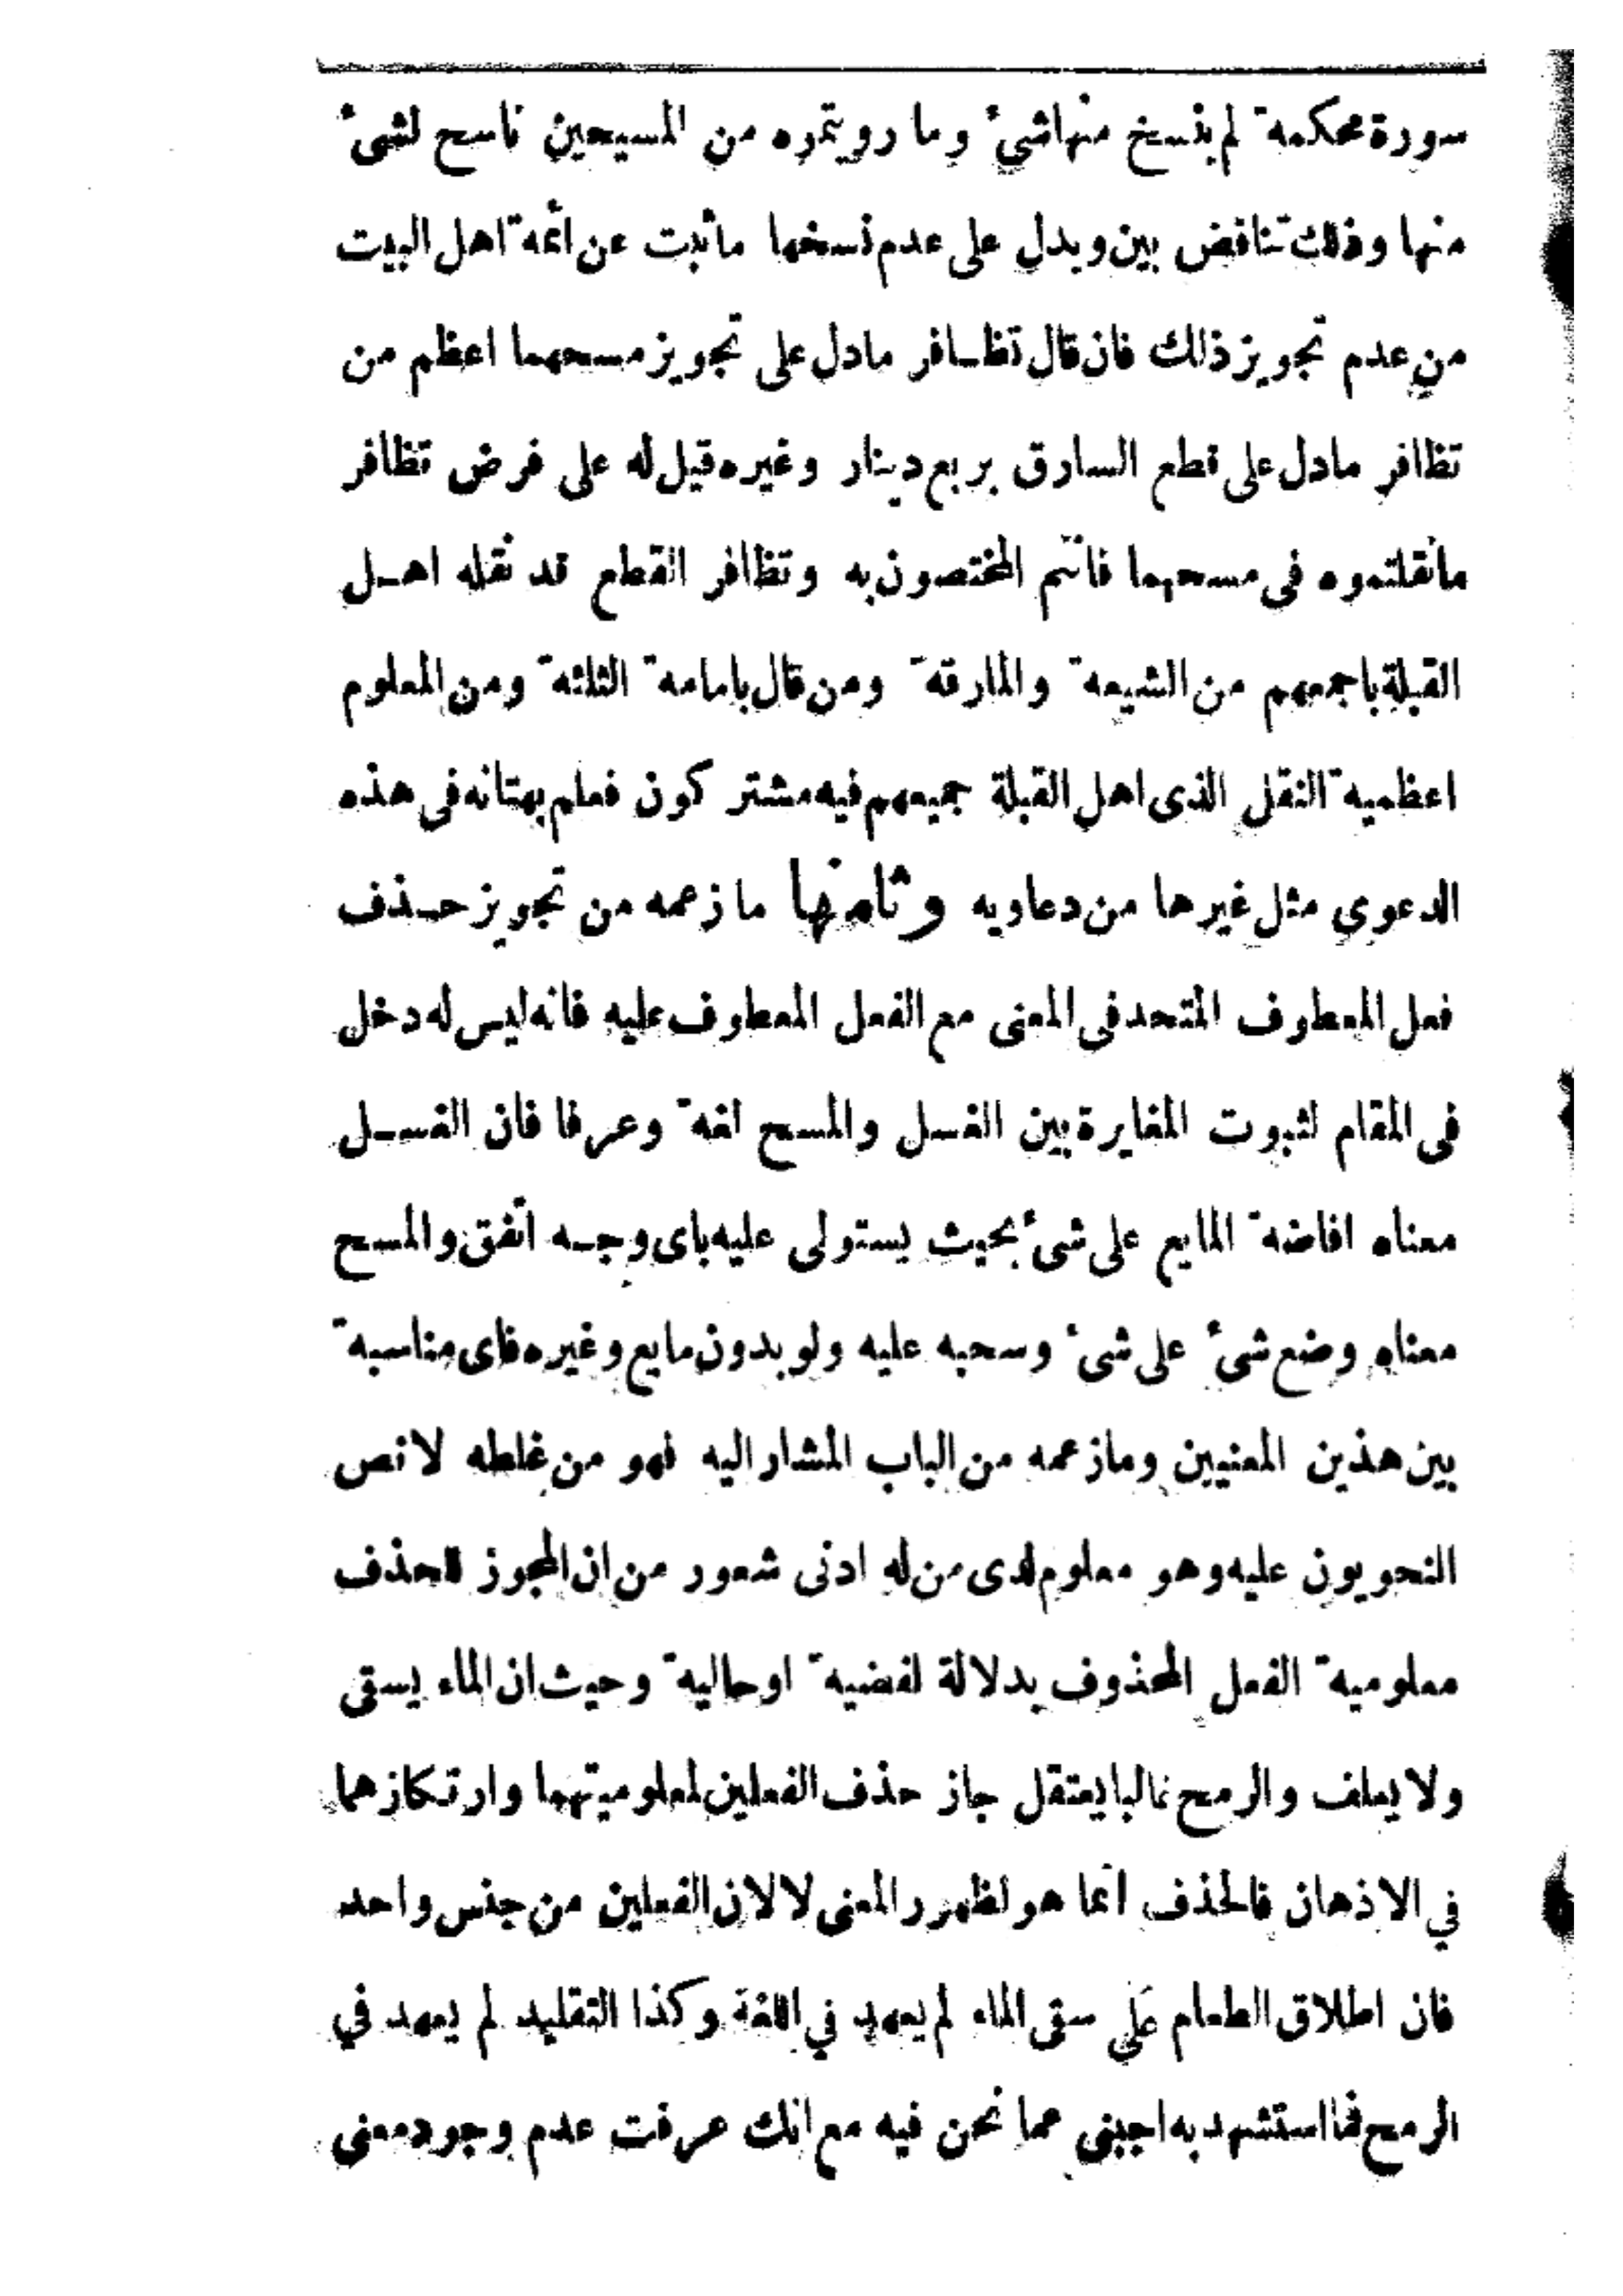 سورة محكمة لم ينسخ منها شئ وما رويتموه من المسيحين ناسح لشئ
منها وذلك تناقض بين ويدل على عدم نسخها ماثبت عن ائمة اهل البيت
من عدم تجويز ذلك فان قال تظافر مادل على تجويز مسحهما اعظم من
تظافر مادل على قطع السارق بربع دينار وغيره قيل له على فرض تظافر
مانقلتموه فى مسحهما فانتم المختصون به وتظافر القطع قد نقله اهل
القبلة باجمعهم من الشيعة والمارقة ومن قال بامامة الثلثة ومن المعلوم
اعظمية النقل الذى اهل القبلة جميعهم فيه مشتركون فعلم بهتانه فى هذه
الدعوى مثل غيرها من دعاويه وثامنها ما زعمه من تجويز حذف
فعل المعطوف المتحد فى المعنى مع الفعل المعطوف عليه فانه ليس له دخل
فى المقام لثبوت المغايرة بين الغسل والمسح لغة وعرفا فان الغسل
معناه افاضة المايع على شئ بحيث يستولى عليه باى وجه اتفق والمسح
معناه وضع شئ على شئ وسحبه عليه ولو بدون مايع وغيره فاى مناسبة
بين هذين المعنيين ومازعمه من الباب المشار اليه فهو من غلطه لانص
النحويون عليه وهو معلوم لدى من له ادنى شعور من ان المجوز للحذف
معلومية الفعل المحذوف بدلالة لفضية اوحالية وحيث ان الماء يسقى
ولا يعلف والرمح غالبا يعتقل جاز حذف الفعلين لمعلوميتهما وارتكازهما
في الاذهان فالحذف انما هو لظهور المعنى لا لان الفعلين من جنس واحد
فان اطلاق الطعام على سقى الماء لم يعهد في اللغة وكذا التقليد لم يعهد في
الرمح فما استشهد به اجنبى عما نحن فيه مع انك عرفت عدم وجود معنى